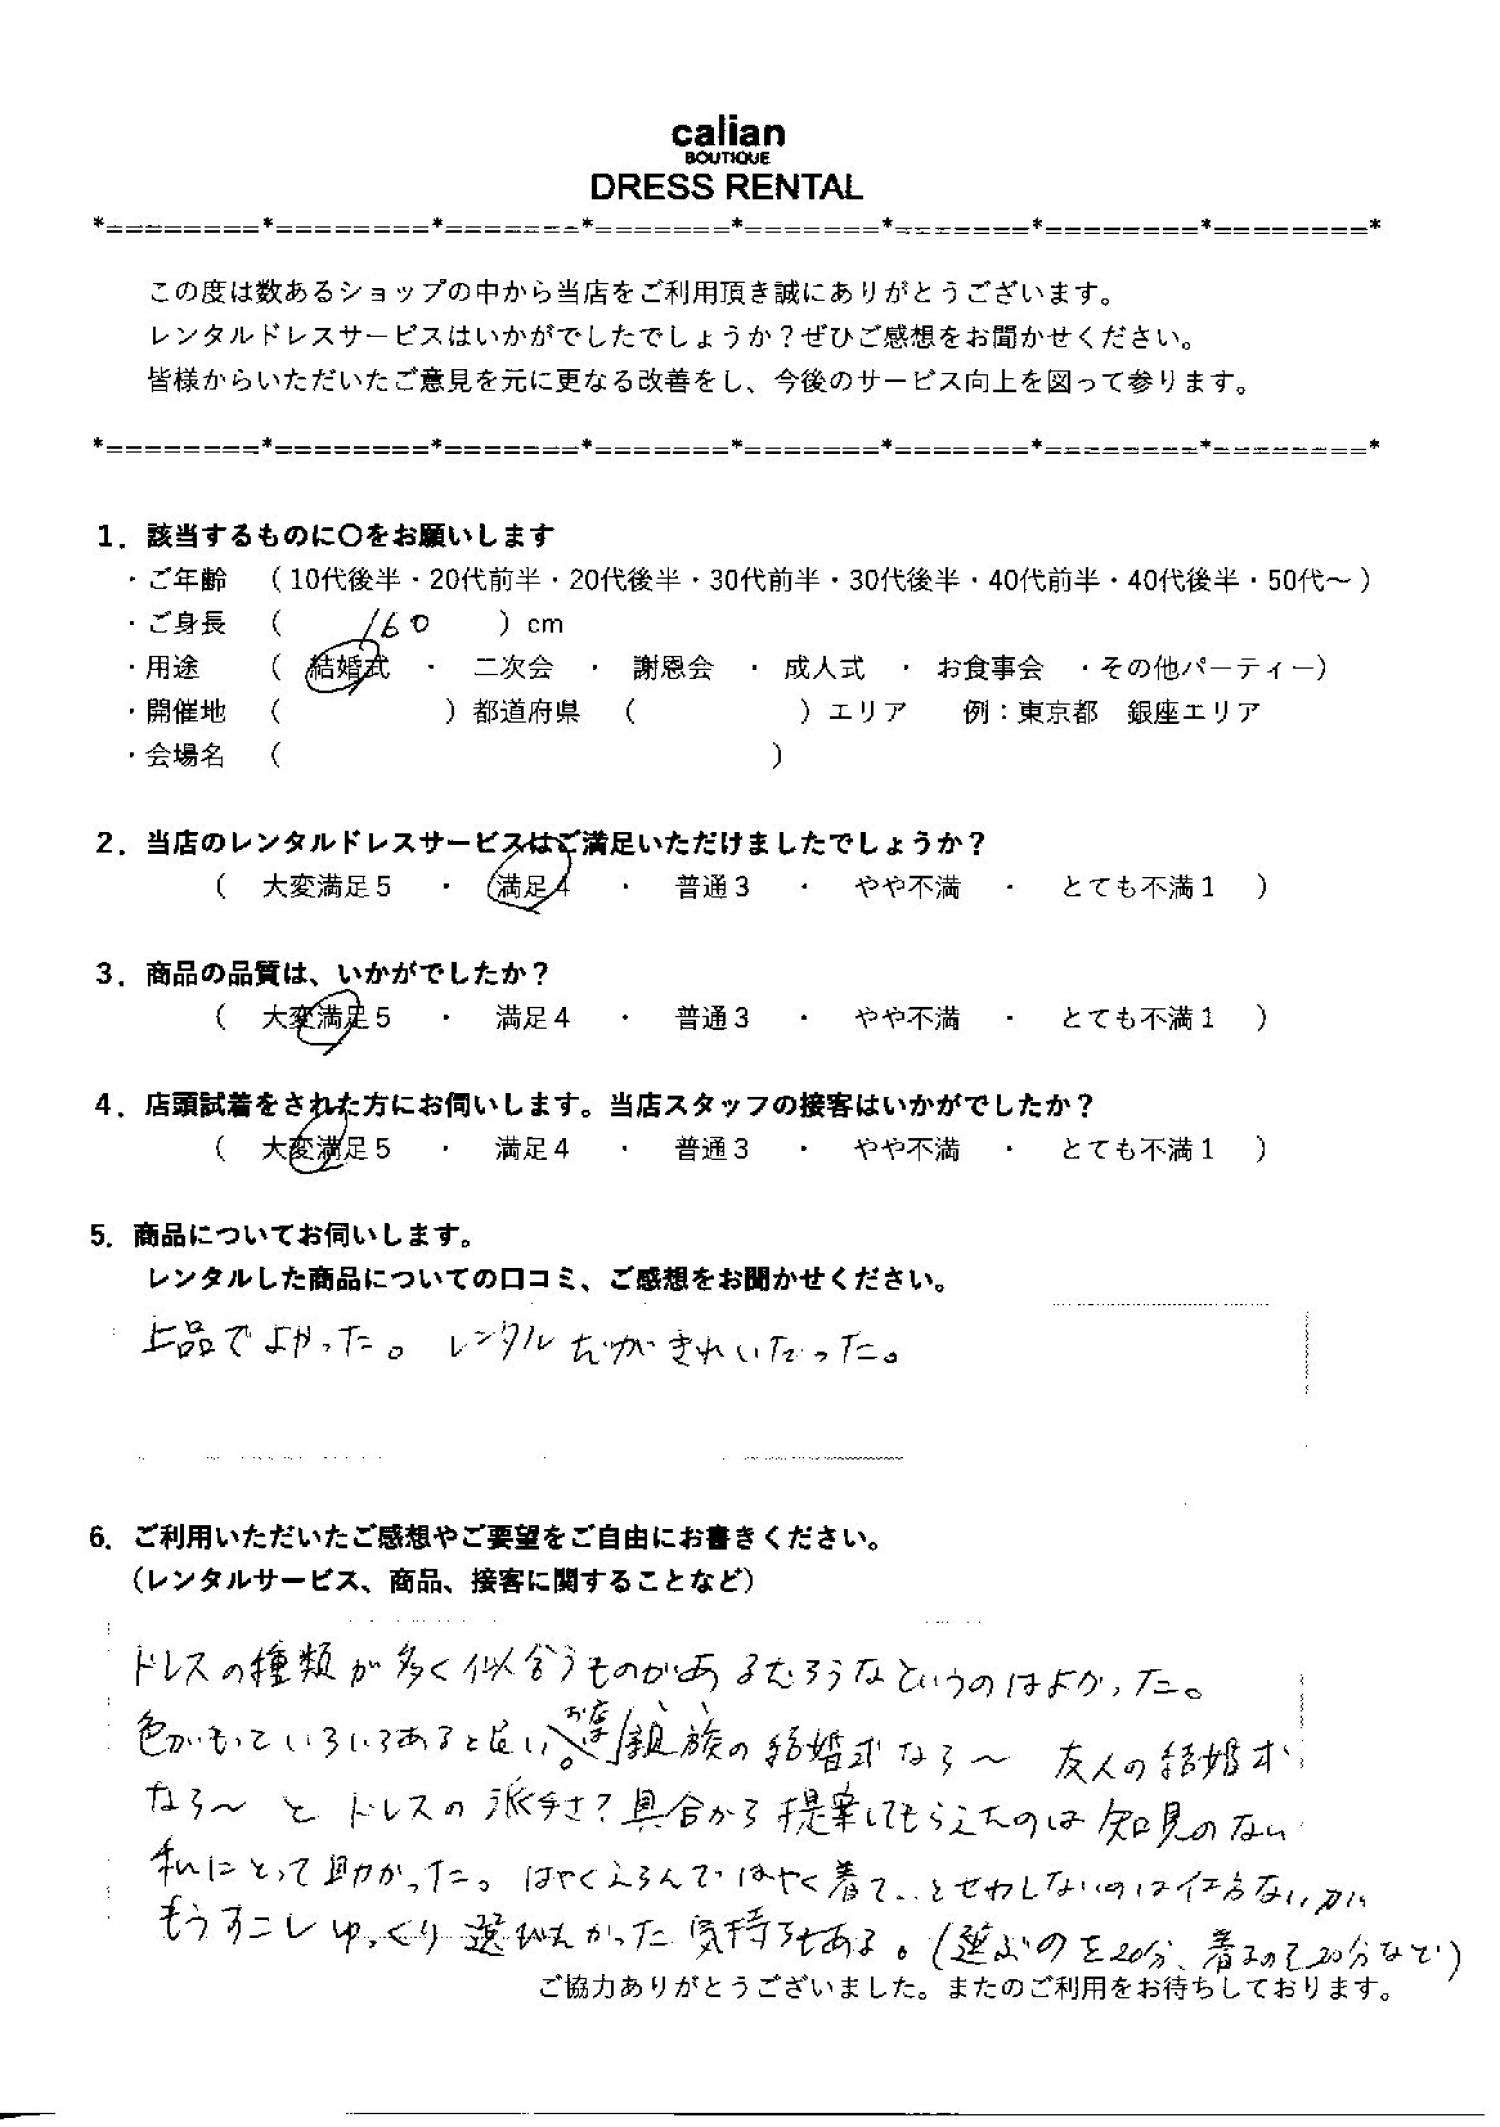 calian
BOUTIQUE
DRESS RENTAL
*=========*=========*========*========*========*========*=========*=========*
この度は数あるショップの中から当店をご利用頂き誠にありがとうございます。
レンタルドレスサービスはいかがでしたでしょうか？ぜひご感想をお聞かせください。
皆様からいただいたご意見を元に更なる改善をし、今後のサービス向上を図って参ります。
*=========*=========*========*========*========*========*=========*=========*
1．該当するものに〇をお願いします
・ご年齢 （10代後半・20代前半・20代後半・30代前半・30代後半・40代前半・40代後半・50代～）
・ご身長 （ 160 ）cm
・用途 （ 結婚式 ・ 二次会 ・ 謝恩会 ・ 成人式 ・ お食事会 ・その他パーティー）
・開催地 （ ）都道府県 （ ）エリア 例：東京都 銀座エリア
・会場名 （ ）
2．当店のレンタルドレスサービスはご満足いただけましたでしょうか？
（ 大変満足5 ・ 満足4 ・ 普通3 ・ やや不満 ・ とても不満1 ）
3．商品の品質は、いかがでしたか？
（ 大変満足5 ・ 満足4 ・ 普通3 ・ やや不満 ・ とても不満1 ）
4．店頭試着をされた方にお伺いします。当店スタッフの接客はいかがでしたか？
（ 大変満足5 ・ 満足4 ・ 普通3 ・ やや不満 ・ とても不満1 ）
5．商品についてお伺いします。
レンタルした商品についての口コミ、ご感想をお聞かせください。
上品でよかった。レンタルだがきれいだった。
6．ご利用いただいたご感想やご要望をご自由にお書きください。
（レンタルサービス、商品、接客に関することなど）
ドレスの種類が多く似合うものがあるだろうなというのはよかった。
色がもっといろいろあると良い。親族の結婚式なら～ 友人の結婚式
なら～ と ドレスの派手さ？具合から提案してもらえたのは知見のない
私にとって助かった。はやくえらんではやく着て..とせわしないのは仕方ないが
もうすこしゆっくり選びたかった気持ちもある。（選ぶのを20分、着るのを20分など）
ご協力ありがとうございました。またのご利用をお待ちしております。